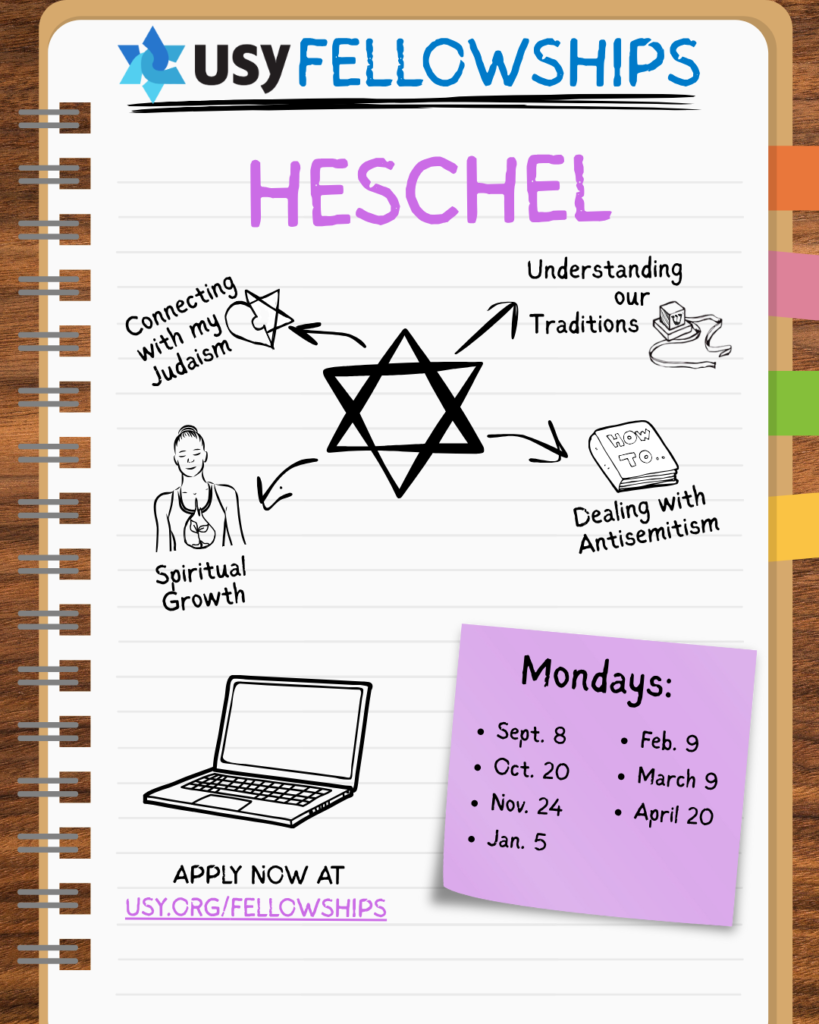 USY FELLOWSHIPS
HESCHEL
Connecting
with my
Judaism
Understanding
our
Traditions
ש
HOW
TO..
Dealing with
Antisemitism
Spiritual
Growth
Mondays:
• Sept. 8
• Oct. 20
• Nov. 24
• Jan. 5
• Feb. 9
• March 9
• April 20
APPLY NOW AT
USY.ORG/FELLOWSHIPS